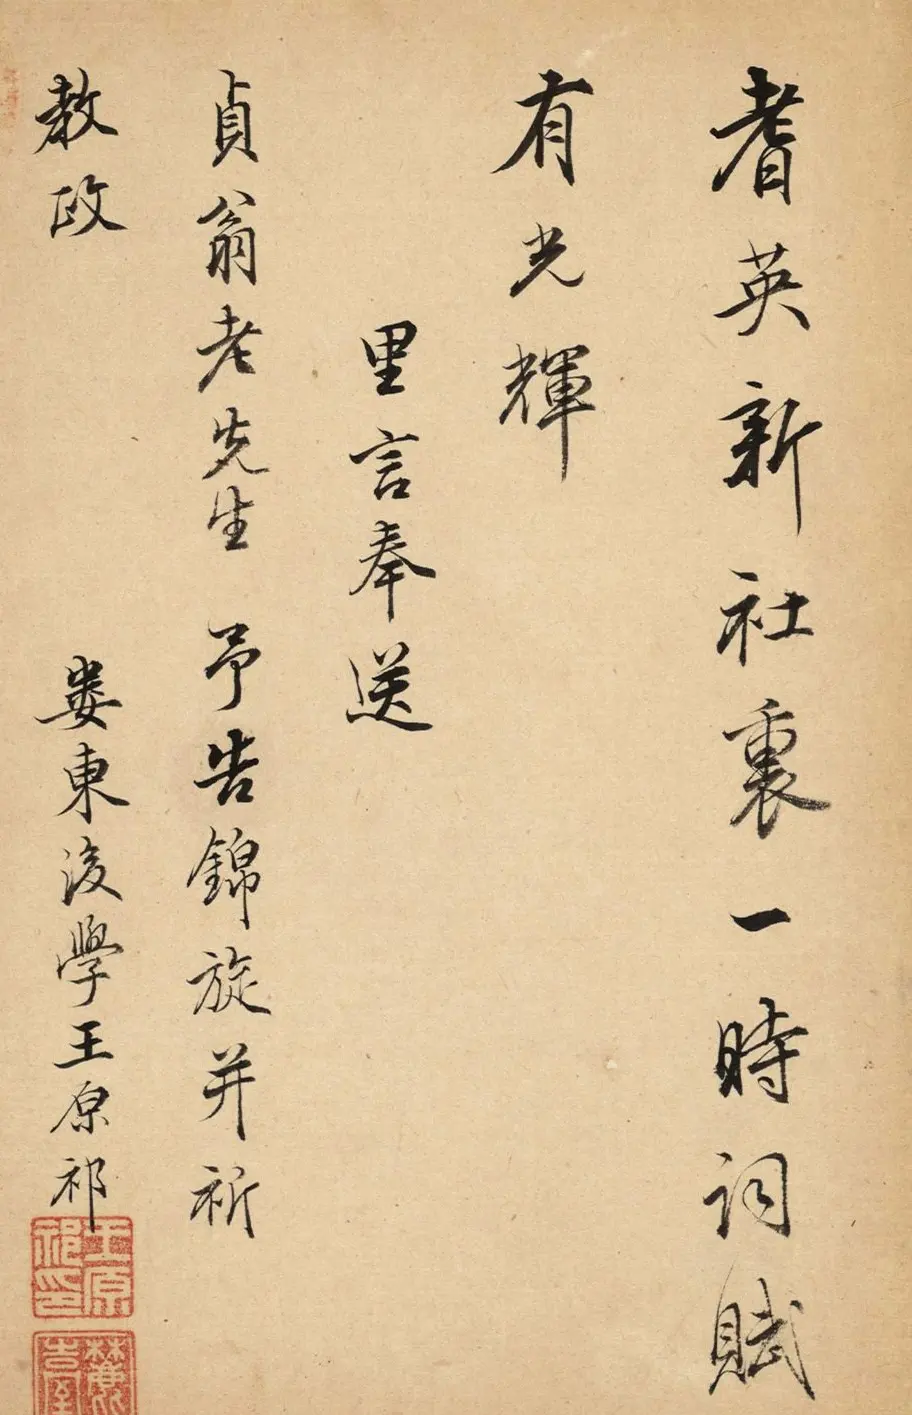 耆英新社裏一時詞賦
有光輝
里言奉送
貞翁老先生 予告錦旋并祈
教政
婁東後學王原祁
王原祁印